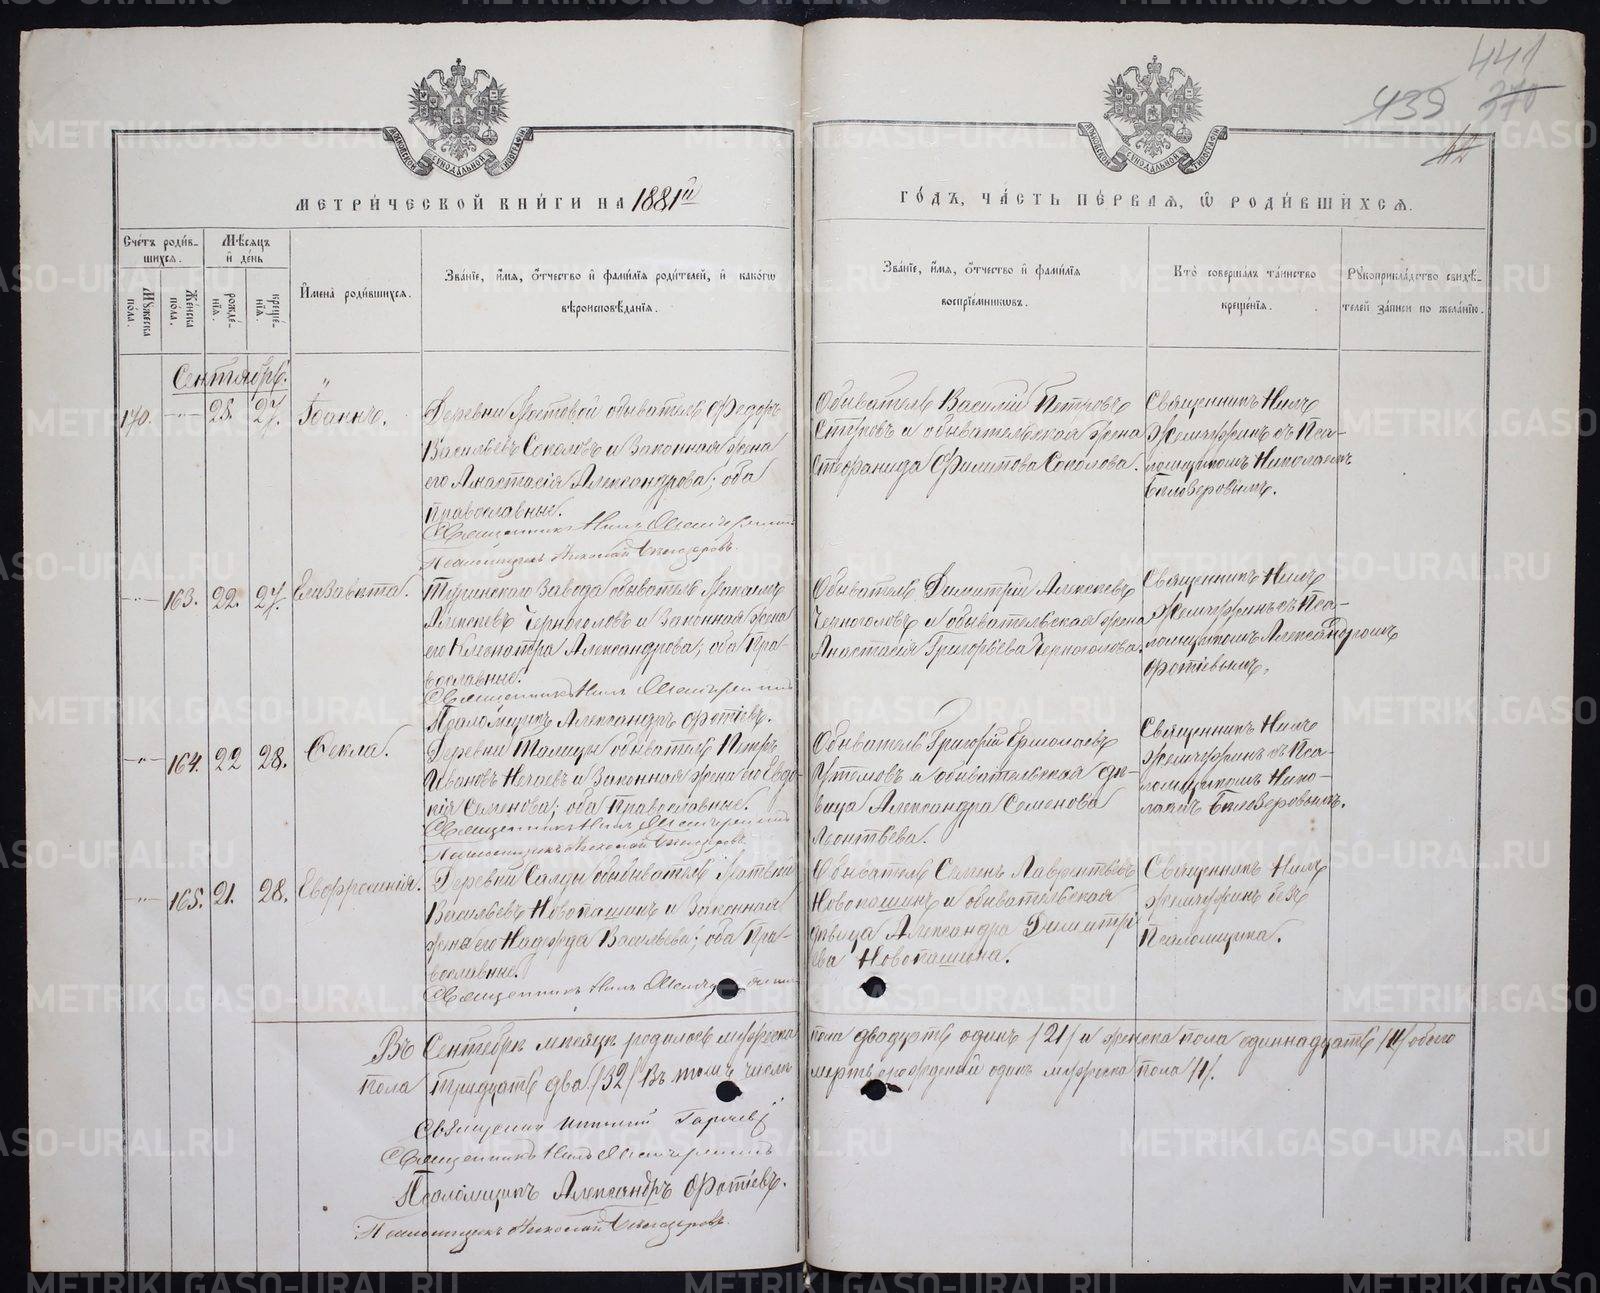 441
439 370
42
МЕТРИ́ЧЕСКОЙ КНИ́ГИ НА 1881й
ГО́ДЪ, ЧА́СТЬ ПЕ́РВАЯ, Ѡ РОДИ́ВШИХСЯ.
Сче́тъ роди́вшихся.
Му́жеска по́ла.
Же́нска по́ла.
Мѣ́сяцъ и҆ де́нь
рожде́нїя.
креще́нїя.
И҆мена̀ роди́вшихся.
Зва́нїе, и҆́мя, ѻ҆́тчество и҆ фами́лїя роди́телей, и҆ како́гѡ вѣроисповѣ́данїя.
Зва́нїе, и҆́мя, ѻ҆́тчество и҆ фами́лїя воспрїе́мникѡвъ.
Кто̀ соверша́лъ та́инство креще́нїя.
Рꙋкоприкла́дство свидѣ́телей за́писи по жела́нїю.
Сентябрь.
170. 25. 27. Іоаннъ.
Деревни обыватель Ѳедоръ
Васильевъ Соколовъ и законная жена
его Анастасія Александрова; оба
православные.
Священникъ Нилъ
Псаломщикъ Николай Бѣлозеровъ.
Обыватель Василій Петровъ
и обывательская жена
Стефанида Филипова Соколова.
Священникъ Нилъ
Жемчужинъ съ Пса-
ломщикомъ Николаемъ
Бѣлозеровымъ.
163. 22. 27. Елизавета.
Туринскаго завода обыватель
Алексѣевъ Черноголовъ и законная жена
его Александрова; оба пра-
вославные.
Священникъ Нилъ
Псаломщикъ Александръ Фотіевъ.
Обыватель Димитрій Алексѣевъ
Черноголовъ и обывательская жена
Анастасія Григорьева Черноголова.
Священникъ Нилъ
Жемчужинъ съ Пса-
ломщикомъ Александромъ
Фотіевымъ.
164. 22 28. Ѳекла.
Деревни Талицы обыватель Петръ
Ивановъ Нечаевъ и законная жена его Евдо-
кія Семенова; оба православные.
Священникъ Нилъ
Псаломщикъ Николай Бѣлозеровъ
Обыватель Григорій Ермолаевъ
Устемовъ и обывательская дѣ-
вица Александра Семенова
Леонтьева.
Священникъ Нилъ
Жемчужинъ съ Пса-
ломщикомъ Нико-
лаемъ Бѣлозеровымъ.
165. 21. 28. Евфросинія.
Деревни Салды обыватель Матвѣй
Васильевъ Новопашинъ и законная
жена его Надежда Васильева; оба пра-
вославные.
Священникъ Нилъ
Обыватель Семенъ Лаврентьевъ
Новопашинъ и обывательская
дѣвица Александра Димитрі-
ева Новопашина.
Священникъ Нилъ
Жемчужинъ безъ
Псаломщика.
Въ Сентябрѣ мѣсяцѣ родилось мужеска пола двадцать одинъ /21/ и женска пола одиннадцать /11/ обоего
пола тридцать два /32/ Въ томъ числѣ мертворожденый одинъ мужеска пола /1/.
Священникъ
Священникъ Нилъ
Псаломщикъ Александръ Фотіевъ.
Псаломщикъ Николай Бѣлозеровъ.
METRIKI.GASO-URAL.RU